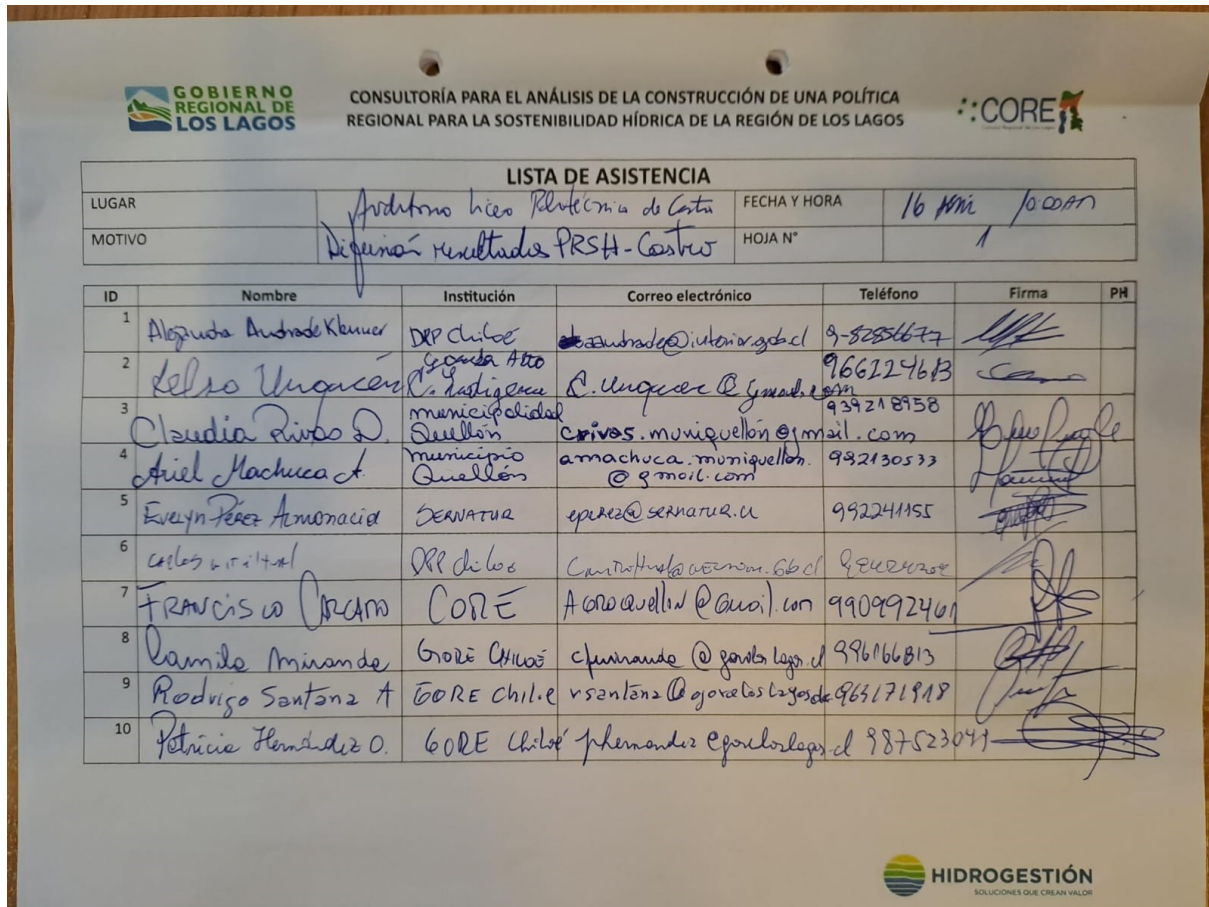 GOBIERNO
REGIONAL DE
LOS LAGOS
CONSULTORÍA PARA EL ANÁLISIS DE LA CONSTRUCCIÓN DE UNA POLÍTICA
REGIONAL PARA LA SOSTENIBILIDAD HÍDRICA DE LA REGIÓN DE LOS LAGOS
CORE
LISTA DE ASISTENCIA
LUGAR Auditorio Liceo Politécnico de Castro FECHA Y HORA 16 10:00AM
MOTIVO Difusión resultados PRSH-Castro HOJA N° 1
ID Nombre Institución Correo electrónico Teléfono Firma PH
1 Alejandra Andrade Klenner DPP Chiloé aandrade@interior.gob.cl 9-82856677
2 C. Unquen @ gmail.com 9661224613
3 Claudia Rivas D. municipalidad Quellón crivas.muniquellon@gmail.com 939218958
4 Ariel Machuca A. municipio Quellón amachuca.muniquellon.
@gmail.com 982130533
5 Evelyn Pérez Almonacid SERNATUR eperez@sernatur.cl 992241155
6 Carlos DPP Chiloé
7 FRANCISCO CÁRCAMO CORE Agroquellon@Gmail.com 990992461
8 Camila Miranda GORE CHILOÉ 996166813
9 Rodrigo Santana A GORE Chiloe rsantana@goreloslagos.cl 963171918
10 Patricia Hernández O. GORE Chiloé phernandez@goreloslagos.cl 987523041
HIDROGESTIÓN
SOLUCIONES QUE CREAN VALOR